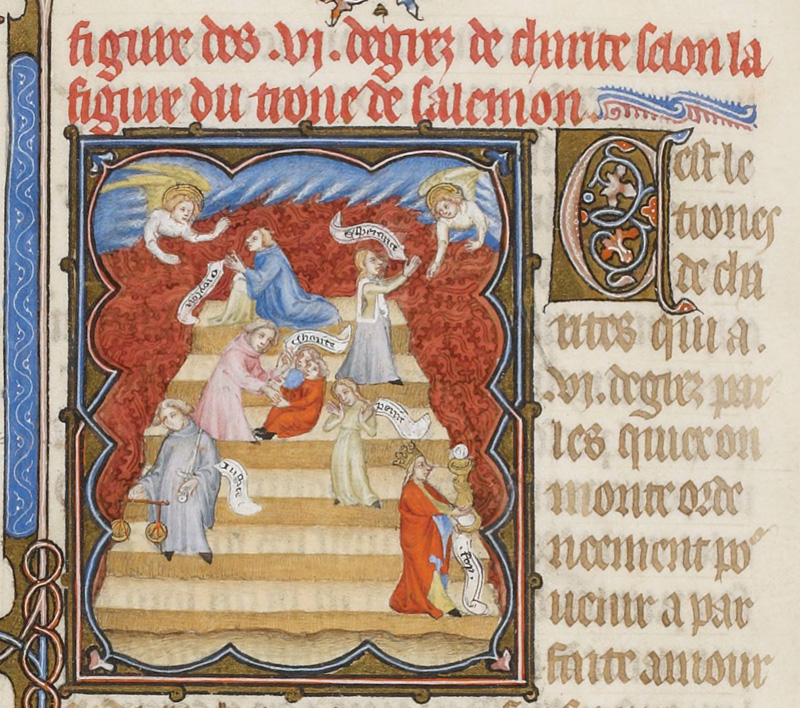 figure des .vj. degrez de charite selon la
figure du trone de salemon.
Cest le
trones
de cha
rites qui a.
.vj. degrez par
les quieron
monte orde
neement po
uenir a par
faite amour
esperance
charite
Iustice
foy.